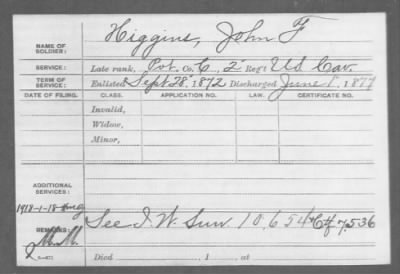 NAME OF SOLDIER: Higgins, John F
SERVICE: Late rank, Pvt. Co. C, 2" Reg't U.S. Cav.
TERM OF SERVICE: Enlisted Sept 28", 1872 Discharged June 1, 1877
DATE OF FILING. CLASS. APPLICATION NO. LAW. CERTIFICATE NO.
Invalid,
Widow,
Minor,
ADDITIONAL SERVICES:
1918-1-18
REMARKS: See I. W. Surv. 10,654 Ctf 7,536
Died , 1 , at